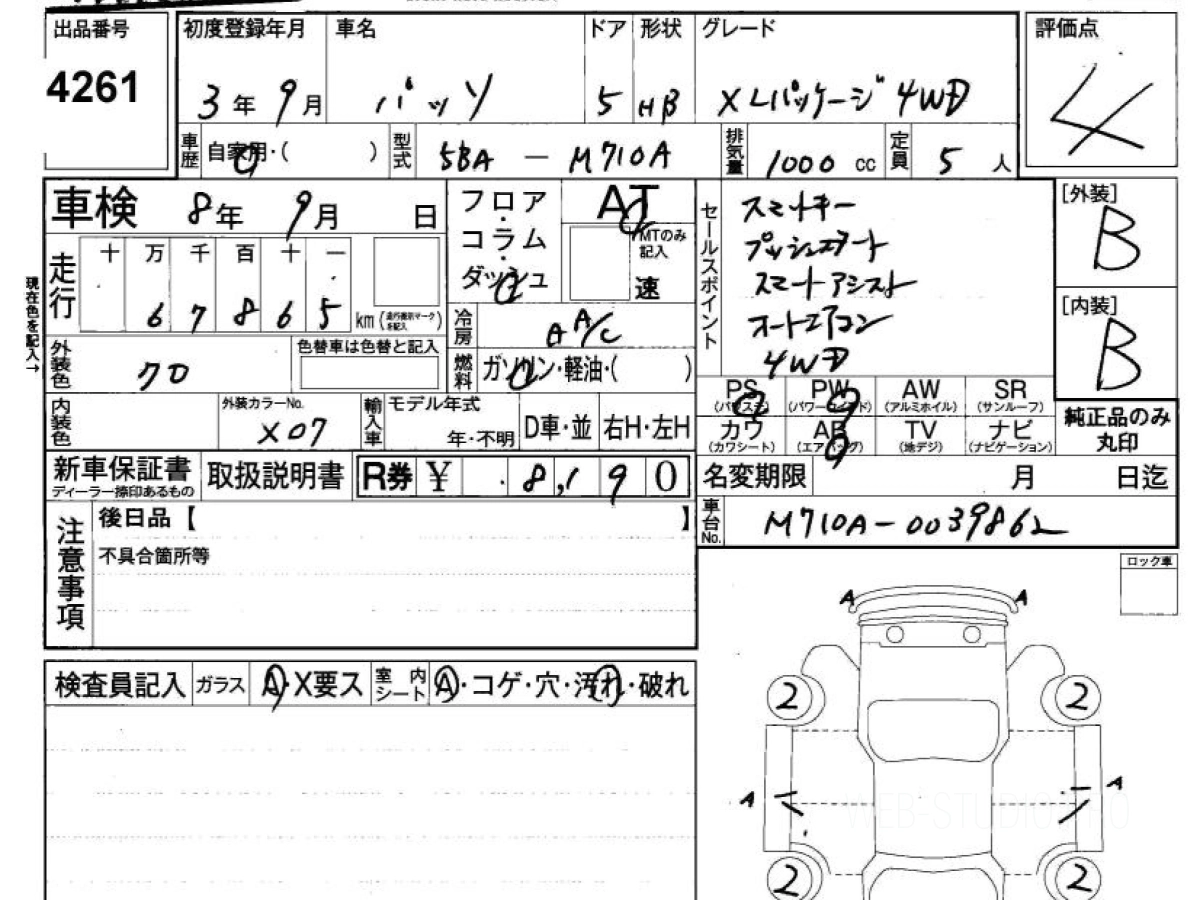 出品番号 初度登録年月 車名 ドア 形状 グレード 評価点
4261 3年 9月 パッソ 5 HB XLパッケージ 4WD 4
車歴 自家用・( ) 型式 5BA - M710A 排気量 1000 cc 定員 5 人
車検 8年 9月 日
フロア・コラム・ダッシュ AT MTのみ記入 速
セールスポイント
スマートキー
プッシュスタート
スマートアシスト
オートエアコン
4WD
[外装]
B
[内装]
B
純正品のみ丸印
現在色を記入→
走行 十 万 千 百 十 一
6 7 8 6 5 km (走行表示マークを記入)
冷房 AA/C
外装色 色替車は色替と記入
燃料 ガソリン・軽油・( )
PS (パワステ) PW (パワーウインド) AW (アルミホイル) SR (サンルーフ)
カワ (カワシート) AB (エアバッグ) TV (地デジ) ナビ (ナビゲーション)
内装色 外装カラーNo. X07 輸入車 モデル年式 年・不明 D車・並 右H・左H
新車保証書 ディーラー捺印あるもの 取扱説明書 R券 ¥ 8,190
名変期限 月 日迄
車台No. M710A-0039862
注意事項
後日品【 】
不具合箇所等
ロック車
A A
検査員記入 ガラス A・X要ス 室内シート A・コゲ・穴・汚れ・破れ
2 2
A A
WEB-STUDIO.PRO
2 2